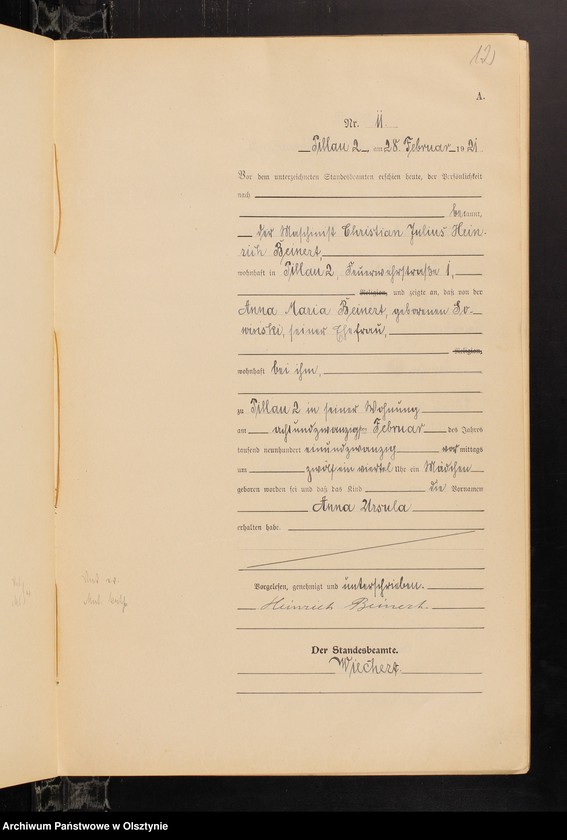 12
A.
Nr. 11.
Pillau 2 am 28. Februar 1921
Vor dem unterzeichneten Standesbeamten erschien heute, der Persönlichkeit
nach
bekannt,
der Maschinist Christian Julius Hein-
rich Beinert,
wohnhaft in Pillau 2, Feuerwehrstraße 1,
Religion, und zeigte an, daß von der
Anna Maria Beinert, geborenen So-
winski, seiner Ehefrau,
Religion,
wohnhaft bei ihm,
zu Pillau 2 in seiner Wohnung
am achtundzwanzigsten Februar des Jahres
tausend neunhundert einundzwanzig vormittags
um zwölfeinviertel Uhr ein Mädchen
geboren worden sei und daß das Kind die Vornamen
Anna Ursula
erhalten habe.
Vorgelesen, genehmigt und unterschrieben.
Heinrich Beinert.
Der Standesbeamte.
Wiechert.
Archiwum Państwowe w Olsztynie